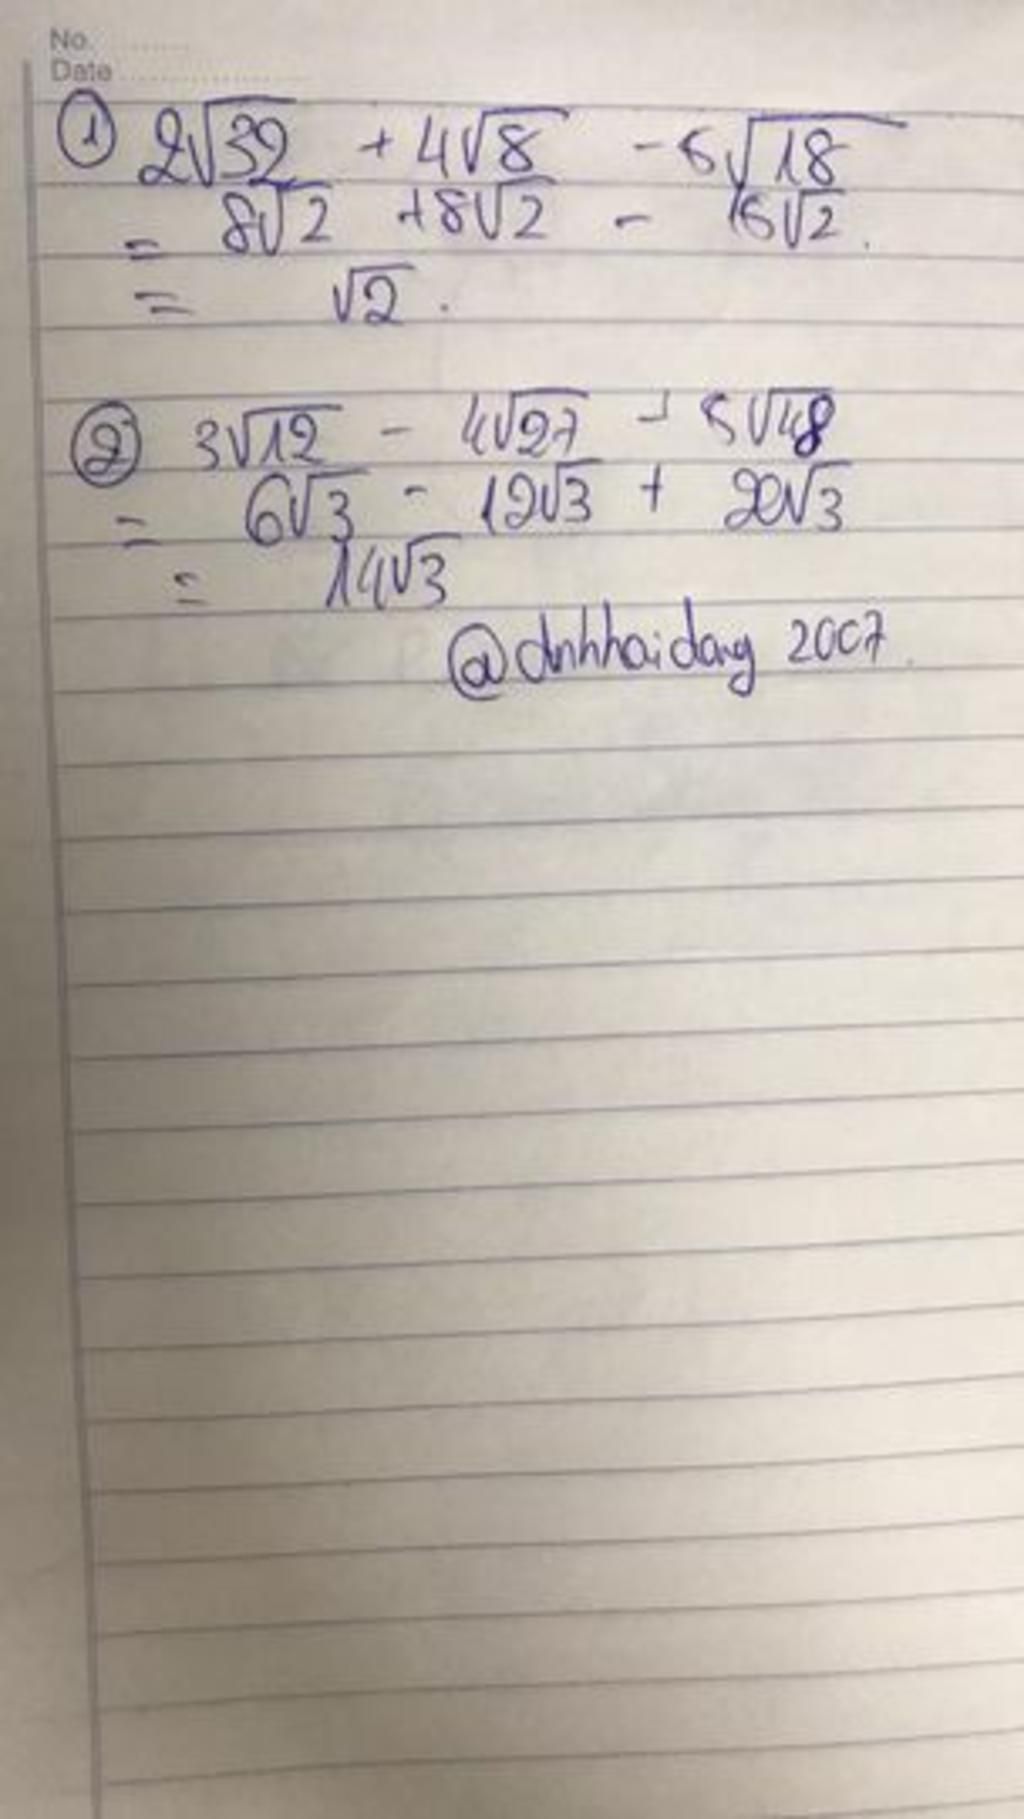 No.
Date
① 2√32 + 4√8 - 5√18
= 8√2 + 8√2 - 15√2.
= √2.
② 3√12 - 4√27 + 5√48
= 6√3 - 12√3 + 20√3
= 14√3
@dnhhaidang 2007.